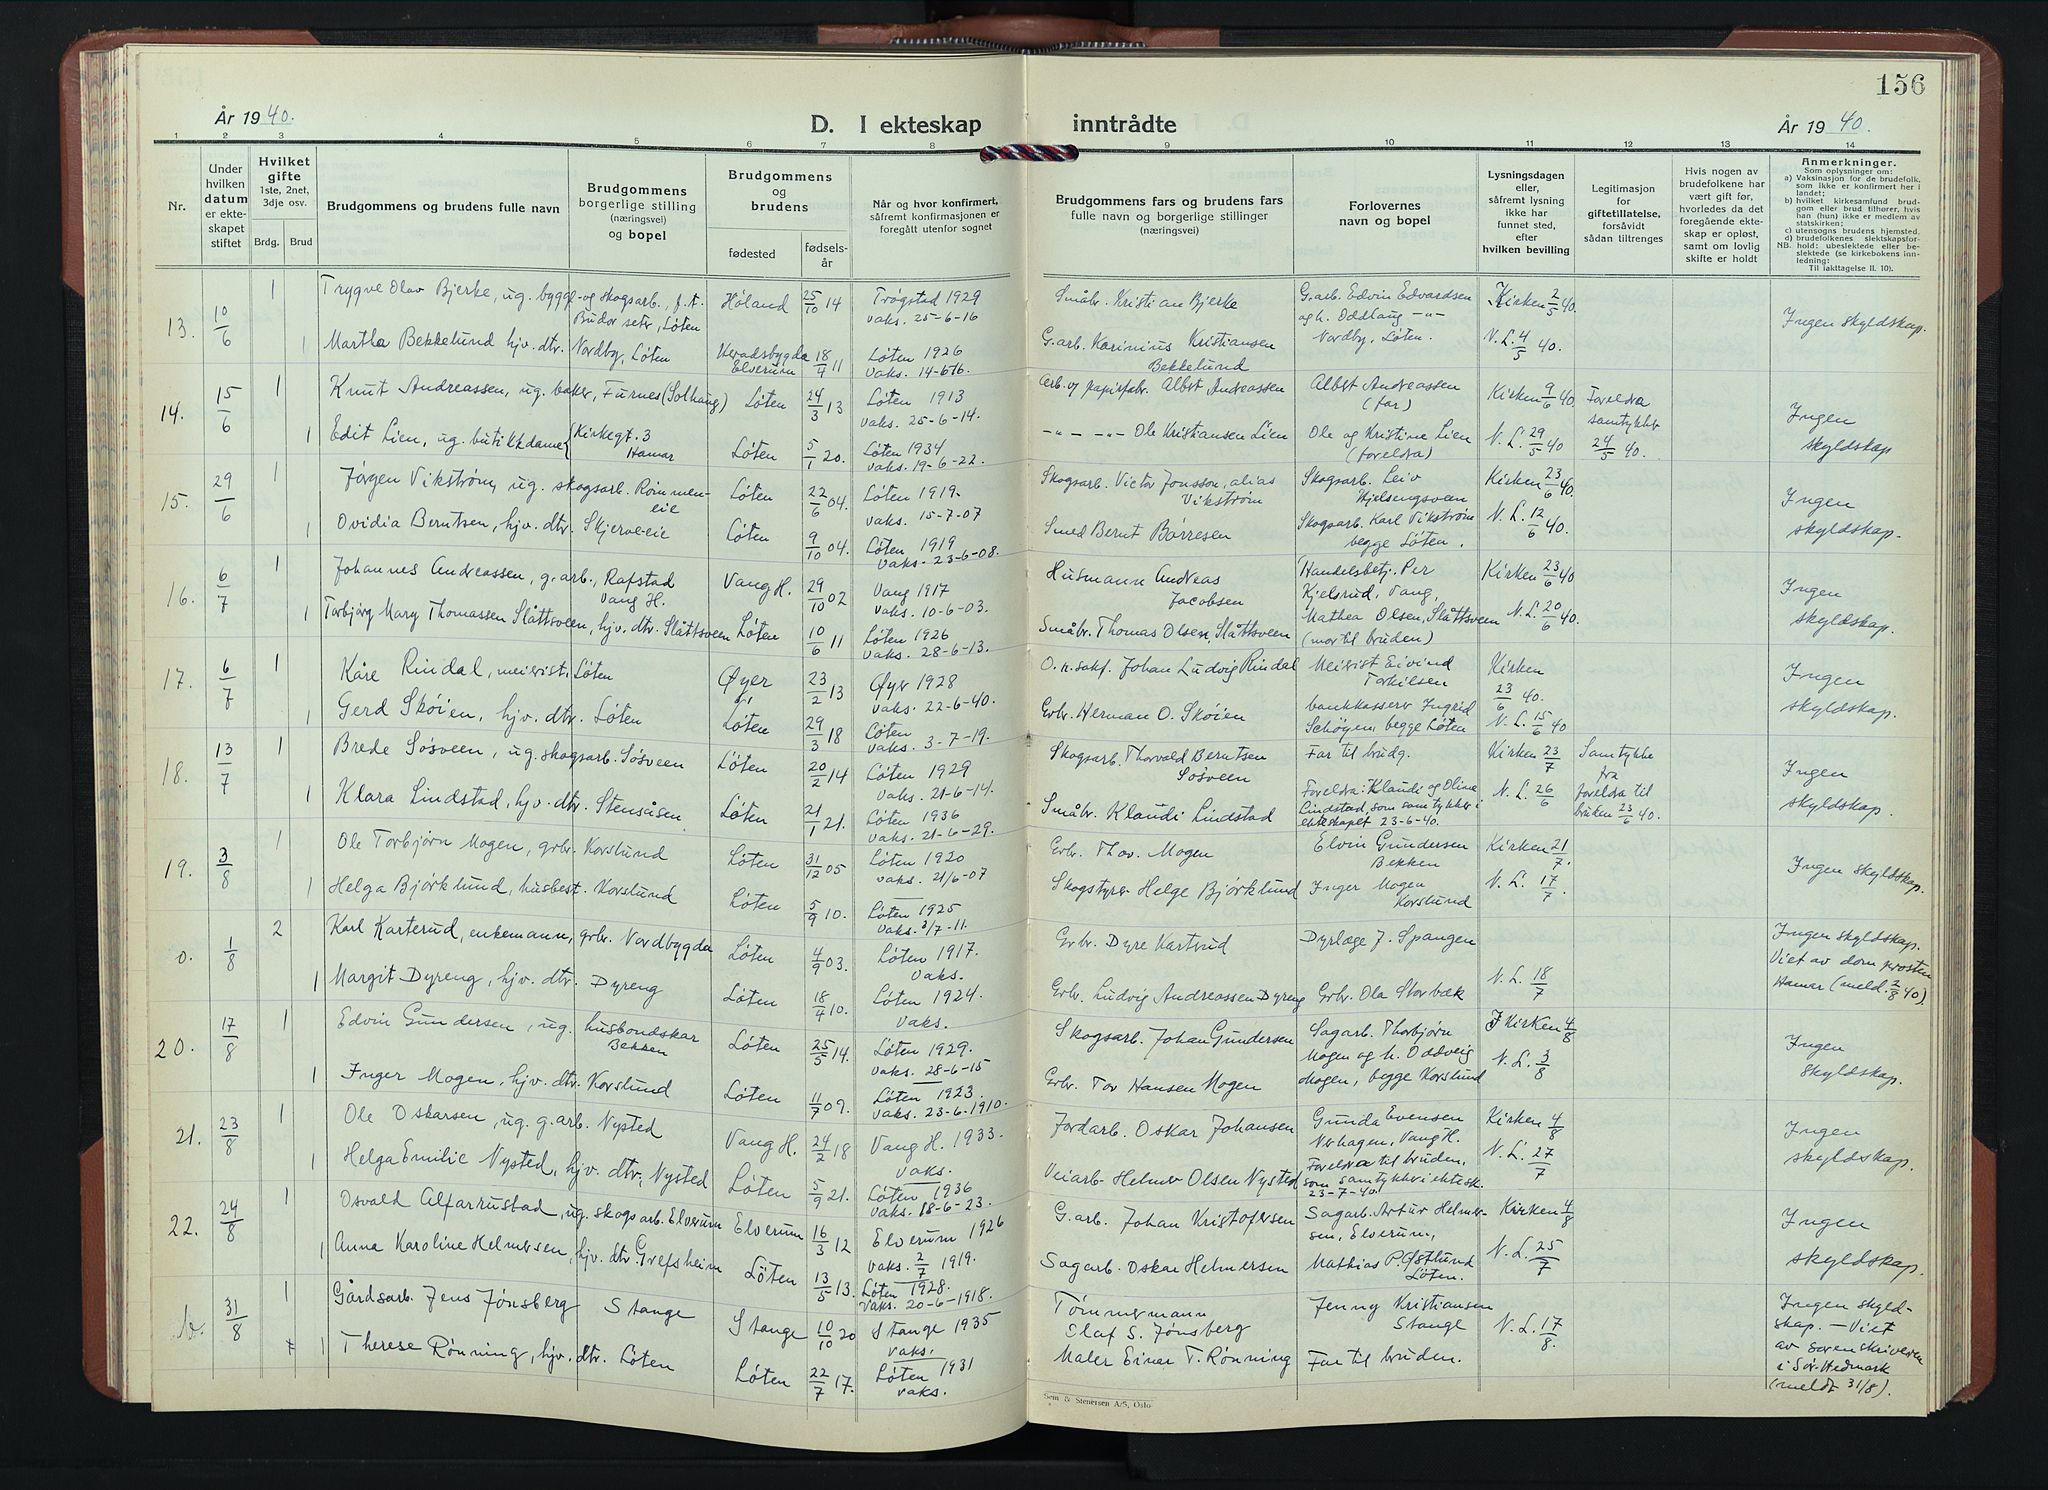 156
År 1940.
D. I ekteskap inntrådte
År 1940.
1 2 3 4 5 6 7 8 9 10 11 12 13 14
Nr.
Under hvilken datum er ekteskapet stiftet
Hvilket gifte 1ste, 2net, 3dje osv.
Brdg. Brud
Brudgommens og brudens fulle navn
Brudgommens borgerlige stilling (næringsvei) og bopel
Brudgommens og brudens
fødested
fødselsår
Når og hvor konfirmert, såfremt konfirmasjonen er foregått utenfor sognet
Brudgommens fars og brudens fars fulle navn og borgerlige stillinger (næringsvei)
Forlovernes navn og bopel
Lysningsdagen eller, såfremt lysning ikke har funnet sted, efter hvilken bevilling
Legitimasjon for giftetillatelse, forsåvidt sådan tiltrenges
Hvis nogen av brudefolkene har vært gift før, hvorledes da det foregående ekteskap er opløst, samt om lovlig skifte er holdt
Anmerkninger.
Som oplysning om:
a) Vaksinasjon for de brudefolk, som ikke er konfirmert her i landet;
b) hvilket kirkesamfund brudgom eller brud tilhører, hvis han (hun) ikke er medlem av statskirken;
c) utensogns brudens hjemsted.
d) brudefolkenes slektskapsforhold: ubeslektede eller beslektede (se kirkebokens innledning:
NB.
Til iakttagelse II. 10).
13. 10/6 1 Trygve Olav Bjerke, ug. bygge- og skogsarb., f. t. Budor seter, Løten Høland 25/10 14 Trøgstad 1929 vaks. 25-6-16 Småbr. Kristian Bjerke G.arb. Edvin Edvardsen og h. Oddlaug -"- Nordby, Løten. I Kirken 2/5 40. Ingen skyldskap.
1 Martha Bekkelund hjv. dtr. Nordby, Løten Heradsbygda Elverum 18/4 11 Løten 1926 vaks. 14-6-16. G.arb. Karinius Kristiansen Bekkelund N. L. 4/5 40.
14. 15/6 1 Knut Andreassen, ug. baker, Furnes (Solhaug) Løten 24/3 13 Løten 1913 vaks. 25-6-14. Arb. v/ papirfabr. Albert Andreassen Albert Andreassen (far) Kirken 9/6 40. Foreldra samtykker 24/5 40. Ingen skyldskap
1 Edit Lien, ug. butikkdame Kirkegt. 3 Hamar Løten 5/1 20. Løten 1934 vaks. 19-6-22. -"- -"- Ole Kristiansen Lien Ole og Kristine Lien (foreldra) N. L. 29/5 40
15. 29/6 1 Jørgen Vikstrøm, ug. skogsarb. Rømmen-eie Løten 22/6 04. Løten 1919. vaks. 15-7-07 Skogsarb. Victor Jonsson, alias Vikstrøm Skogsarb. Leiv Hjelsengsveen Kirken 23/6 40. Ingen skyldskap.
1 Ovidia Berntsen, hjv. dtr. Skjerveeie Løten 9/10 04. Løten 1919 vaks. 23-6-08. Smed Bernt Børresen Skogsarb. Karl Vikstrøm begge Løten. N. L. 12/6 40.
16. 6/7 1 Johannes Andreassen, g.arb., Rafstad Vang H. Vang H. 29/10 02 Vang 1917 vaks. 10-6-03. Husmann Andreas Jacobsen Handelsbetj. Per Kjelsrud, Vang, Kirken 23/6 40 Ingen skyldskap.
1 Torbjørg Mary Thomassen Slåttsveen, hjv. dtr. Slåttsveen Løten 10/6 11 Løten 1926 vaks. 28-6-13. Småbr. Thomas Olsen Slåttsveen Mathea Olsen, Slåttsveen (mor til bruden) N. L. 20/6 40.
17. 6/7 1 Kåre Rindal, meierist, Løten Øyer 23/2 13 Øyer 1928 vaks. 22-6-40. O.r.sakf. Johan Ludvig Rindal Meierist Eivind Torkilsen Kirken 23/6 40. Ingen skyldskap.
1 Gerd Skøien, hjv. dtr. Løten Løten 29/3 18 Løten vaks. 3-7-19. Grbr. Herman O. Skøien bankkasserer Ingrid Schøgen, begge Løten N. L. 15/6 40
18. 13/7 1 Brede Søsveen, ug. skogsarb. Søsveen Løten 20/2 14 Løten 1929 vaks. 21-6-14. Skogsarb. Thorvald Berntsen Søsveen Far til brudg. Kirken 23/7 Samtykke fra foreldra til bruden 23/6 40. Ingen skyldskap.
1 Klara Lindstad, hjv. dtr. Stensåsen Løten 21/1 21. Løten 1936 vaks. 21-6-29. Småbr. Klaudi Lindstad Foreldra: Klaudi og Olina Lindstad, som samtykker i ekteskapet 23-6-40. N. L. 26/6
19. 3/8 1 Ole Torbjørn Mogen, grbr. Korslund Løten 31/12 05 Løten 1920 vaks. 21/6-07 Grbr. Thov. Mogen Elvin Gundersen Bekken Kirken 21/7. Ingen skyldskap.
1 Helga Bjørklund, husbest. Korslund Løten 5/9 10. Løten 1925 vaks. 3/7-11. Skogstyrer Helge Bjørklund Inger Mogen Korslund N. L. 17/7.
0. 1/8 2 Karl Karterud, enkemann, grbr. Nordbygda Løten 4/9 03. Løten 1917. vaks. Grbr. Dyre Karterud Dyrlæge J. Spangen Ingen skyldskap. Viet av domprosten Hamar (meld. 2/8 40)
1 Margit Dyreng, hjv. dtr. Dyreng Løten 18/4 10. Løten 1924. vaks. Grbr. Ludvig Andreassen Dyreng Grbr. Ola Storbæk N. L. 18/7
20. 17/8 1 Edvin Gundersen, ug. husbondskar Bekken Løten 25/5 14. Løten 1929. vaks. 28-6-15 Skogsarb. Johan Gundersen Sagarb. Thorbjørn Mogen og h. Oddveig Mogen, begge Korslund I Kirken 4/8 Ingen skyldskap.
1 Inger Mogen, hjv. dtr. Korslund Løten 11/7 09. Løten 1923. vaks. 23-6-1910. Grbr. Tov Hansen Mogen N. L. 3/8
21. 23/8 1 Ole Oskarsen, ug. g.arb. Nysted Vang H. 24/2 18 Vang H. 1933. vaks. Jordarb. Oskar Johansen Gunda Evensen Verhagen, Vang H. Kirken 4/8 Ingen skyldskap.
1 Helga Emilie Nysted, hjv. dtr., Nysted Løten 5/9 21. Løten 1936 vaks. 18-6-23. Veiarb. Helmer Olsen Nysted Foreldra til bruden, som samtykker i ektesk. 23-7-40. N. L. 27/7
22. 24/8 1 Osvald Alfarrustad, ug. skogsarb. Elverum Elverum 16/3 12 Elverum 1926 vaks. 2/7 1919. G.arb. Johan Kristofersen Sagarb. Artur Helmersen, Elverum, Kirken 4/8 Ingen skyldskap.
1 Anna Karoline Helmersen, hjv. dtr. Grefsheim Løten 13/5 13. Løten 1928. vaks. 20-6-1918. Sagarb. Oskar Helmersen Mathias P. Østlund Løten. N. L. 25/7
b. 31/8 1 Gårdsarb. Jens Jønsberg Stange Stange 10/10 20 Stange 1935 vaks. Tømmermann Olaf S. Jønsberg Jenny Kristiansen Stange N. L. 17/8. Ingen skyldskap. — Viet av sorenskriveren i Sør-Hedmark (meldt 31/8).
1 Therese Rønning, hjv. dtr. Løten Løten 22/7 17. Løten 1931 vaks. Maler Einar T. Rønning Far til bruden.
Sem & Stenersen A/S, Oslo